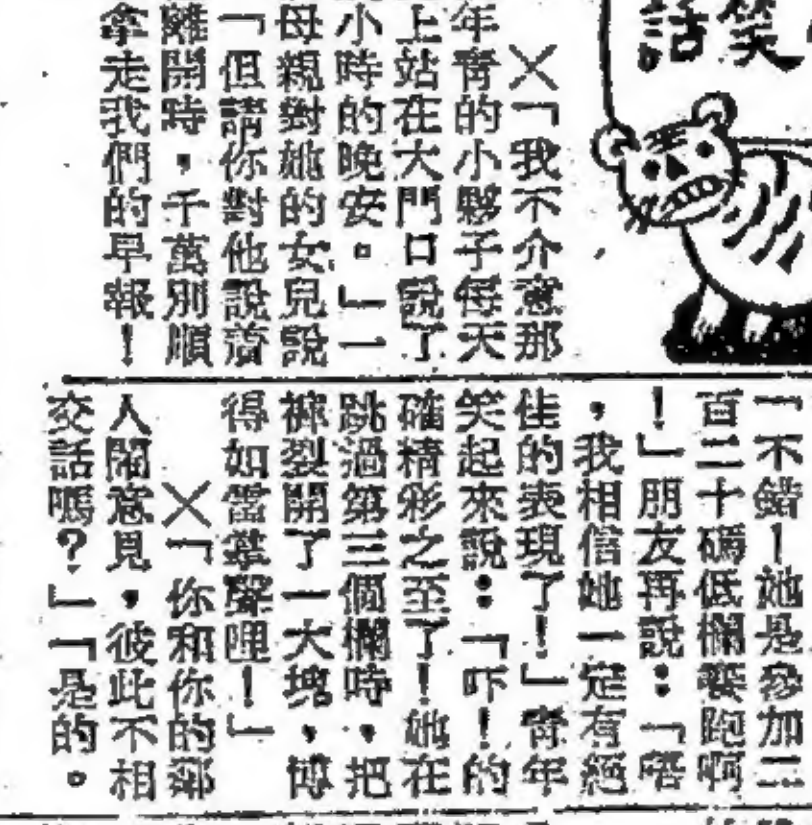 笑話
×「我不介意那
年青的小夥子每天
上站在大門口說了
小時的晚安。」一
母親對她的女兒說
「但請你對他說當
離開時，千萬別順
拿走我們的早報！
「不錯！她是參加二
百二十碼低欄賽跑啊
！」朋友再說：「唔
，我相信她一定有絕
佳的表現了！」青年
笑起來說：「吓！的
確精彩之至了！她在
跳過第三個欄時，把
褲裂開了一大塊，博
得如雷掌聲哩！」
×「你和你的鄰
人鬧意見，彼此不相
交話嗎？」「是的。